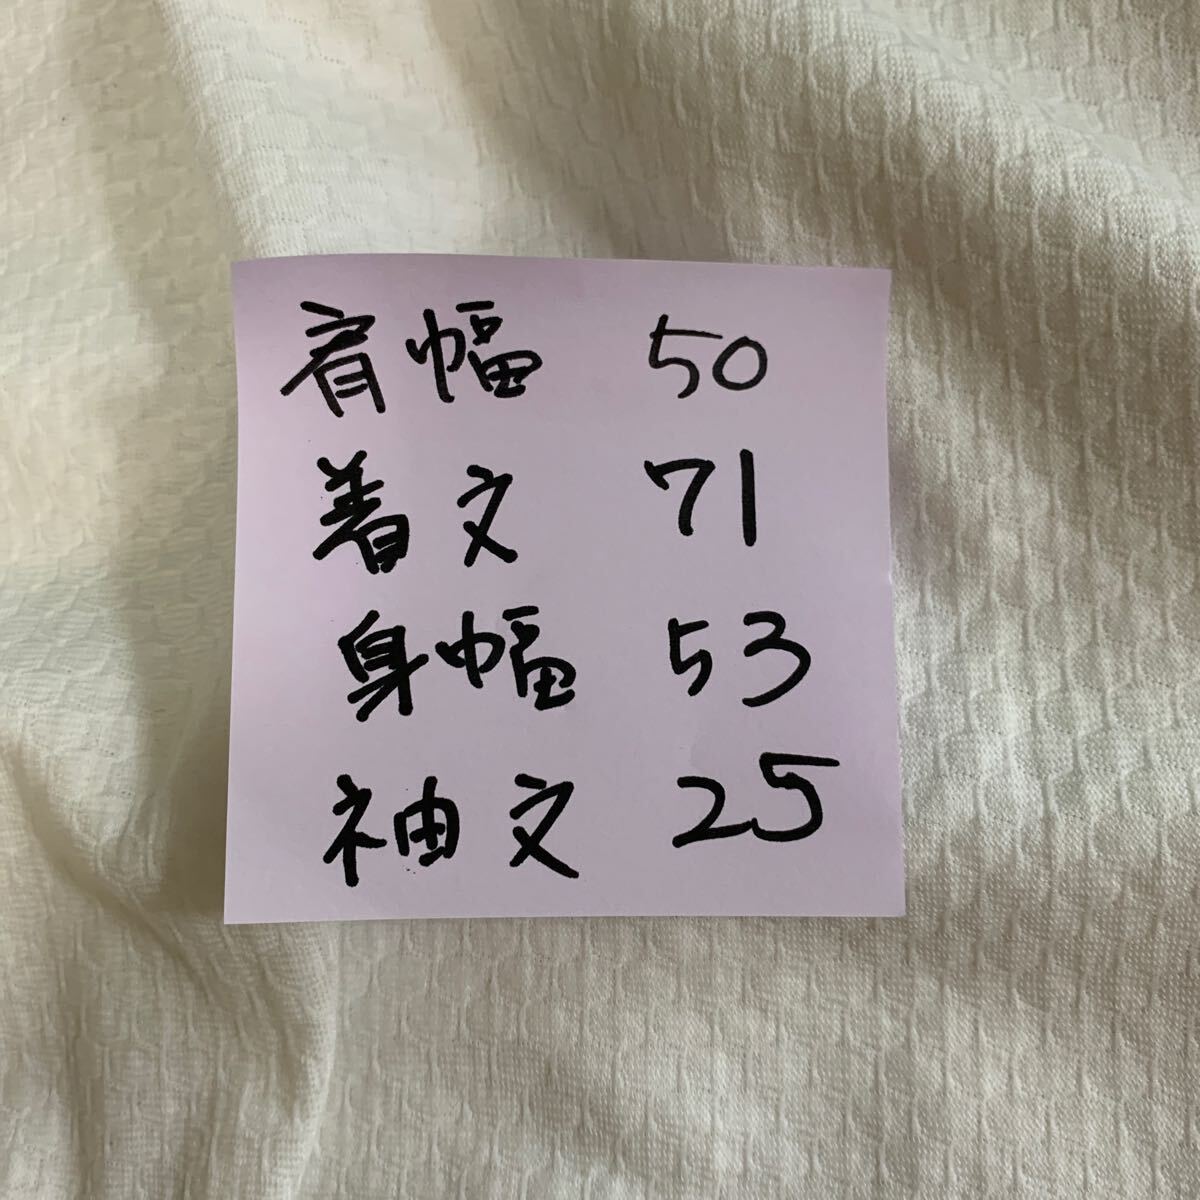 肩幅 50
着丈 71
身幅 53
袖丈 25